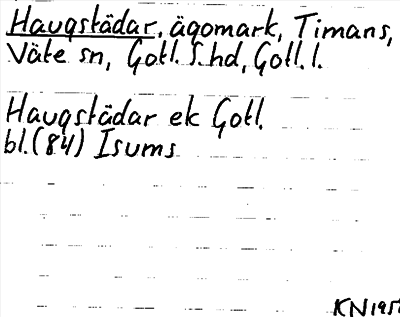 Haugstädar, ägomark, Timans,
Väte sn, Gotl. S. hd, Gotl. l.
Haugstädar ek Gotl.
bl. (84) Isums
KN 195